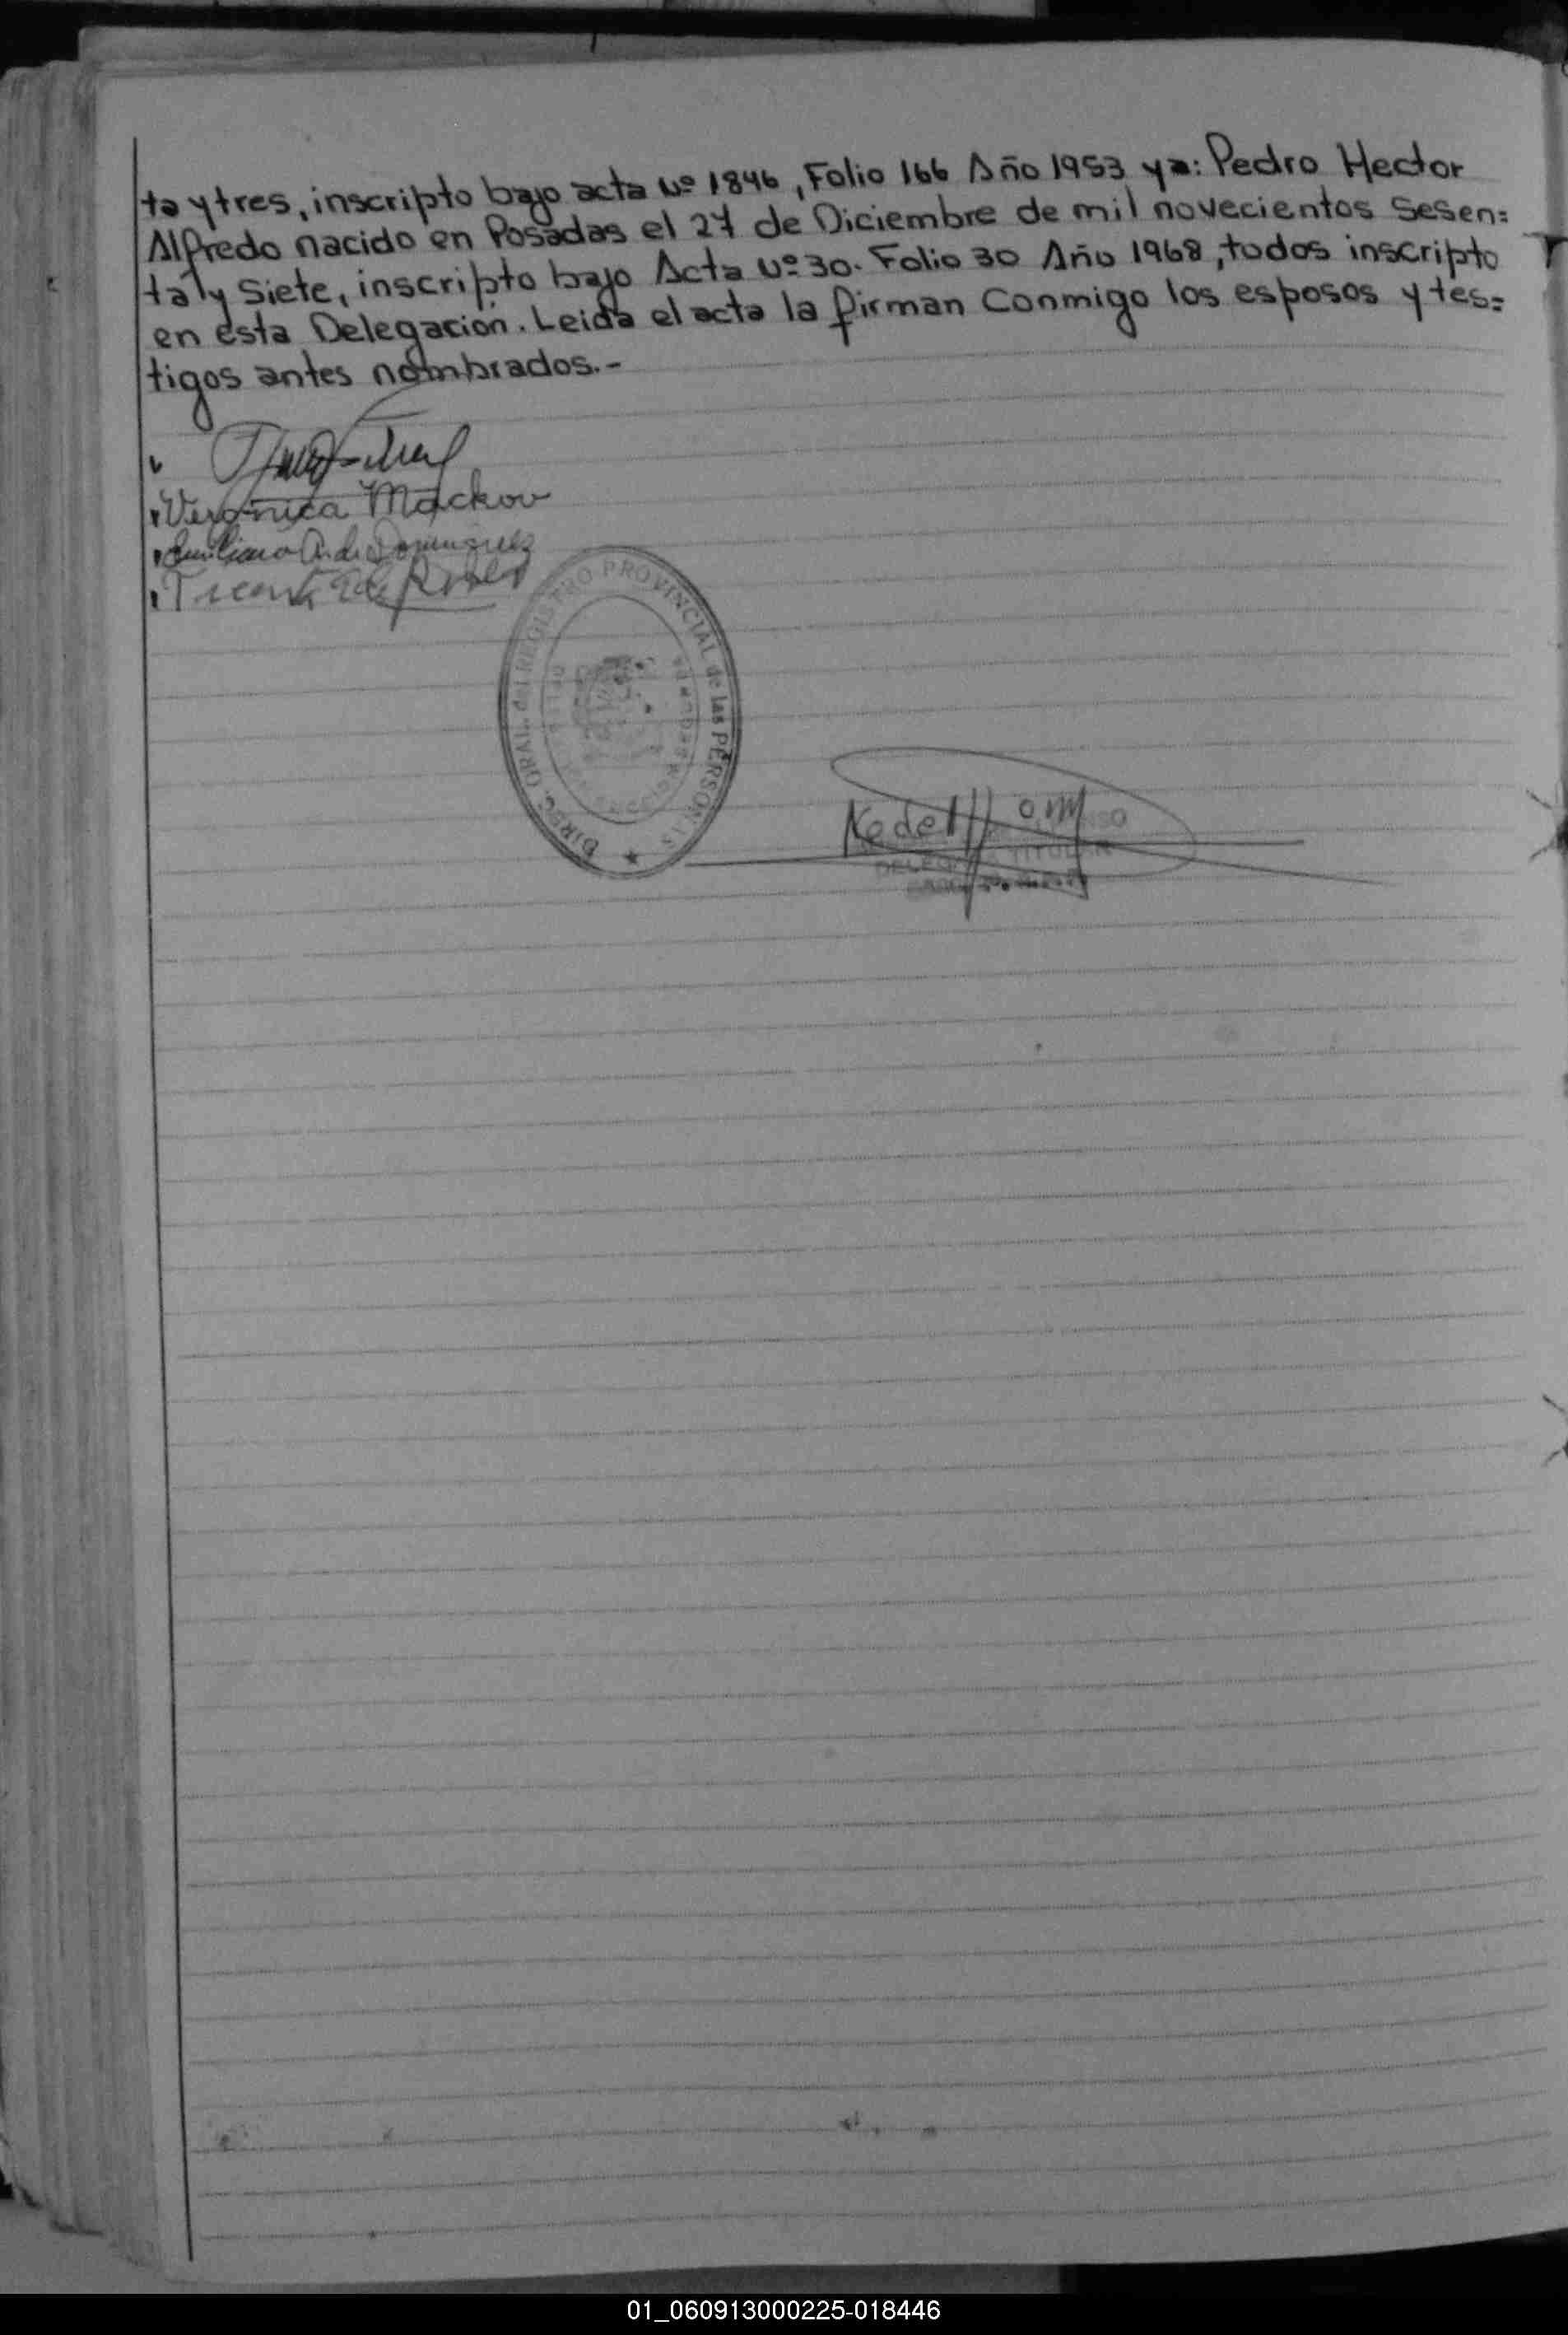 ta y tres, inscripto bajo acta Nº 1846, Folio 166 Año 1953 y a: Pedro Hector
Alfredo nacido en Posadas el 27 de Diciembre de mil novecientos sesen=
ta y siete, inscripto bajo Acta Nº 30. Folio 30 Año 1968, todos inscripto
en esta Delegación. Leida el acta la firman conmigo los esposos y tes=
tigos antes nombrados.-
Veronica Mackov
Emiliano Dominguez
DIREC. GRAL. del REGISTRO PROVINCIAL de las PERSONAS
TITULAR
01_060913000225-018446